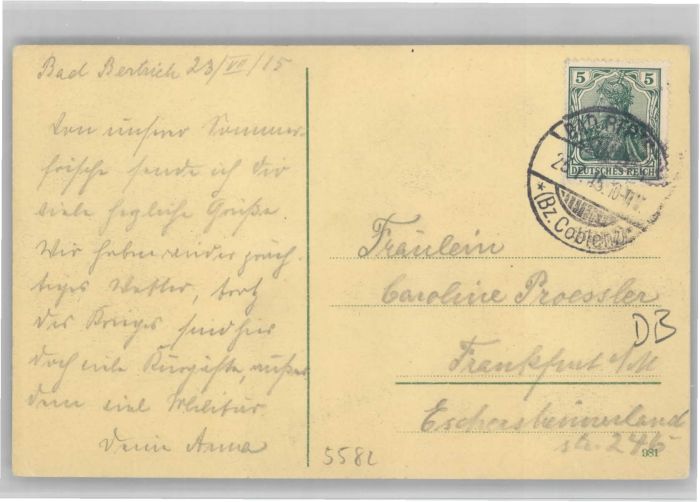 Bad Bertrich 23/VII/15
Von unserer Sommer-
frische sende ich dir
viele herzliche Grüße
Wir haben präch-
tiges Wetter, trotz
des Krieges sind hier
doch viele Kurgäste, außer
dem viel Militär
Deine Anna
5 5
DEUTSCHES REICH
BAD BERTRICH
*(Bz. Coblenz)
Fräulein
Caroline Proessler
DB
Frankfurt a/M
Eschersheimerland
str. 246
981
5582